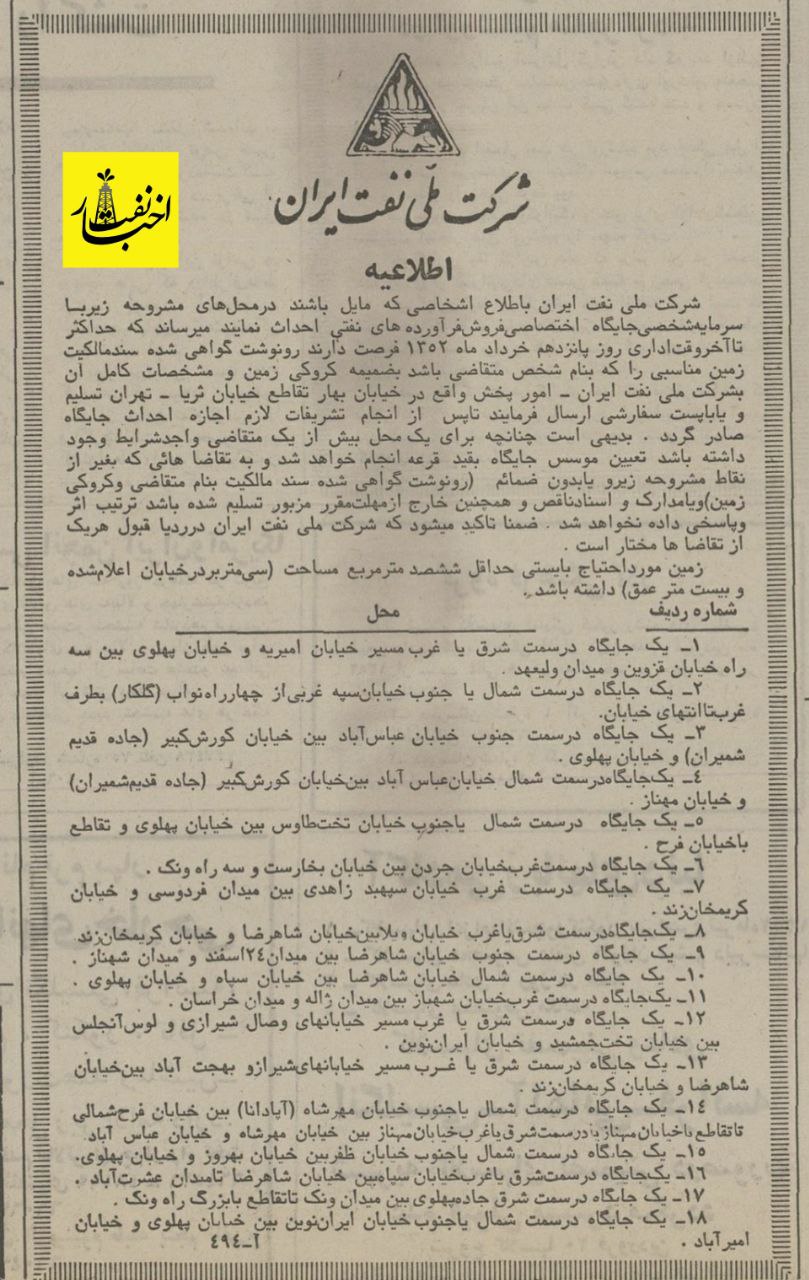 شرکت ملّی نفت ایران
اخبار نفت
اطلاعیه
شرکت ملی نفت ایران باطلاع اشخاصی که مایل باشند درمحل‌های مشروحه زیربا
سرمایه‌شخصی‌جایگاه اختصاصی‌فروش‌فرآورده های نفتی احداث نمایند میرساند که حداکثر
تاآخروقت‌اداری روز پانزدهم خرداد ماه ۱۳۵۲ فرصت دارند رونوشت گواهی شده سندمالکیت
زمین مناسبی را که بنام شخص متقاضی باشد بضمیمه کروکی زمین و مشخصات کامل آن
بشرکت ملی نفت ایران ـ امور پخش واقع در خیابان بهار تقاطع خیابان ثریا ـ تهران تسلیم
و یاباپست سفارشی ارسال فرمایند تاپس از انجام تشریفات لازم اجازه احداث جایگاه
صادر گردد . بدیهی است چنانچه برای یک محل بیش از یک متقاضی واجدشرایط وجود
داشته باشد تعیین موسس جایگاه بقید قرعه انجام خواهد شد و به تقاضا هائی که بغیر از
نقاط مشروحه زیرو یابدون ضمائم (رونوشت گواهی شده سند مالکیت بنام متقاضی وکروکی
زمین)ویامدارک و اسنادناقص و همچنین خارج ازمهلت‌مقرر مزبور تسلیم شده باشد ترتیب اثر
وپاسخی داده نخواهد شد . ضمنا تاکید میشود که شرکت ملی نفت ایران درردیا قبول هریک
از تقاضا ها مختار است .
زمین مورداحتیاج بایستی حداقل ششصد مترمربع مساحت (سی‌متربردرخیابان اعلام‌شده
و بیست متر عمق) داشته باشد .
شماره ردیف محل
۱ـ یک جایگاه درسمت شرق یا غرب مسیر خیابان امیریه و خیابان پهلوی بین سه
راه خیابان قزوین و میدان ولیعهد .
۲ـ یک جایگاه درسمت شمال یا جنوب خیابان‌سپه غربی‌از چهارراه‌نواب (گلکار) بطرف
غرب‌تاانتهای خیابان.
۳ـ یک جایگاه درسمت جنوب خیابان عباس‌آباد بین خیابان کورش‌کبیر (جاده قدیم
شمیران) و خیابان پهلوی .
۴ـ یک‌جایگاه‌درسمت شمال خیابان‌عباس آباد بین‌خیابان کورش‌کبیر (جاده قدیم‌شمیران)
و خیابان مهناز .
۵ـ یک جایگاه درسمت شمال یاجنوب خیابان تخت‌طاوس بین خیابان پهلوی و تقاطع
باخیابان فرح .
۶ـ یک جایگاه درسمت‌غرب‌خیابان جردن بین خیابان بخارست و سه راه ونک .
۷ـ یک جایگاه درسمت غرب خیابان سپهبد زاهدی بین میدان فردوسی و خیابان
کریمخان‌زند .
۸ـ یک‌جایگاه‌درسمت شرق‌یاغرب خیابان ویلابین‌خیابان شاهرضا و خیابان کریمخان‌زند.
۹ـ یک جایگاه درسمت جنوب خیابان شاهرضا بین میدان۲۴اسفند و میدان شهناز .
۱۰ـ یک جایگاه درسمت شمال خیابان شاهرضا بین خیابان سپاه و خیابان پهلوی .
۱۱ـ یک‌جایگاه درسمت غرب‌خیابان شهباز بین میدان ژاله و میدان خراسان .
۱۲ـ یک جایگاه درسمت شرق یا غرب مسیر خیابانهای وصال شیرازی و لوس‌آنجلس
بین خیابان تخت‌جمشید و خیابان ایران‌نوین .
۱۳ـ یک جایگاه درسمت شرق یا غرب مسیر خیابانهای‌شیرازو بهجت آباد بین‌خیابان
شاهرضا و خیابان کریمخان‌زند .
۱۴ـ یک جایگاه درسمت شمال یاجنوب خیابان مهرشاه (آپادانا) بین خیابان فرح‌شمالی
تاتقاطع باخیابان مهناز یادرسمت‌شرق یاغرب‌خیابان‌مهناز بین خیابان مهرشاه و خیابان عباس آباد.
۱۵ـ یک جایگاه درسمت شمال یاجنوب خیابان ظفربین خیابان بهروز و خیابان پهلوی.
۱۶ـ یک‌جایگاه درسمت‌شرق یاغرب‌خیابان سپاه‌بین خیابان شاهرضا تامیدان عشرت‌آباد .
۱۷ـ یک جایگاه درسمت شرق جاده‌پهلوی بین میدان ونک تاتقاطع بابزرگ راه ونک .
۱۸ـ یک جایگاه درسمت شمال یاجنوب خیابان ایران‌نوین بین خیابان پهلوی و خیابان
امیرآباد . آ-۴۹۴